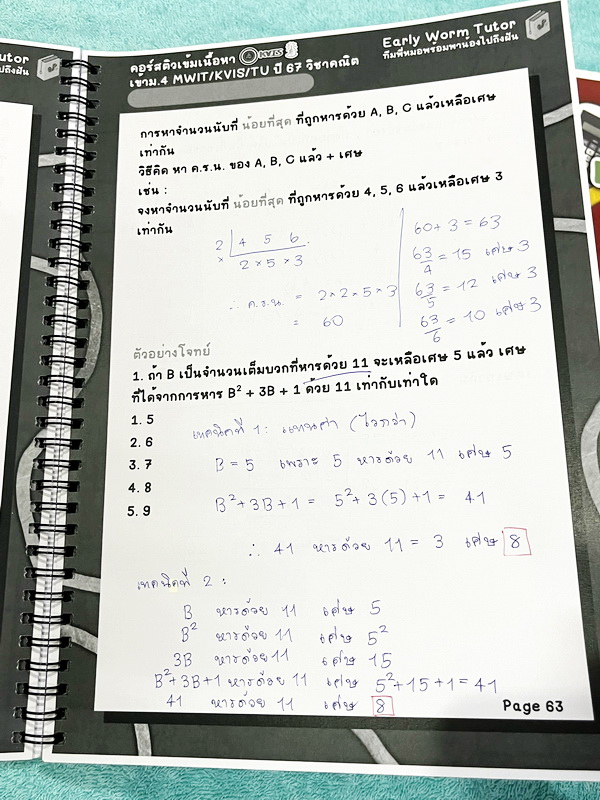 utor
ปถึงฝัน
คอร์สติวเข้มเนื้อหา KVIS
เข้าม.4 MWIT/KVIS/TU ปี 67 วิชาคณิต
Early Worm Tutor
ทีมพี่หมอพร้อมพาน้องไปถึงฝัน
การหาจำนวนนับที่ น้อยที่สุด ที่ถูกหารด้วย A, B, C แล้วเหลือเศษ
เท่ากัน
วิธีคิด หา ค.ร.น. ของ A, B, C แล้ว + เศษ
เช่น :
จงหาจำนวนนับที่ น้อยที่สุด ที่ถูกหารด้วย 4, 5, 6 แล้วเหลือเศษ 3
เท่ากัน
2 4 5 6
× 2 × 5 × 3
∴ ค.ร.น. = 2×2×5×3
= 60
60 + 3 = 63
63/4 = 15 เศษ 3
63/5 = 12 เศษ 3
63/6 = 10 เศษ 3
ตัวอย่างโจทย์
1. ถ้า B เป็นจำนวนเต็มบวกที่หารด้วย 11 จะเหลือเศษ 5 แล้ว เศษ
ที่ได้จากการหาร B² + 3B + 1 ด้วย 11 เท่ากับเท่าใด
1. 5
2. 6
3. 7
4. 8
5. 9
เทคนิคที่ 1 : แทนค่า (ไวกว่า)
B = 5 เพราะ 5 หารด้วย 11 เศษ 5
B² + 3B + 1 = 5² + 3(5) + 1 = 41
∴ 41 หารด้วย 11 = 3 เศษ 8
เทคนิคที่ 2 :
B หารด้วย 11 เศษ 5
B² หารด้วย 11 เศษ 5²
3B หารด้วย 11 เศษ 15
B² + 3B + 1 หารด้วย 11 เศษ 5² + 15 + 1 = 41
41 หารด้วย 11 เศษ 8
Page 63